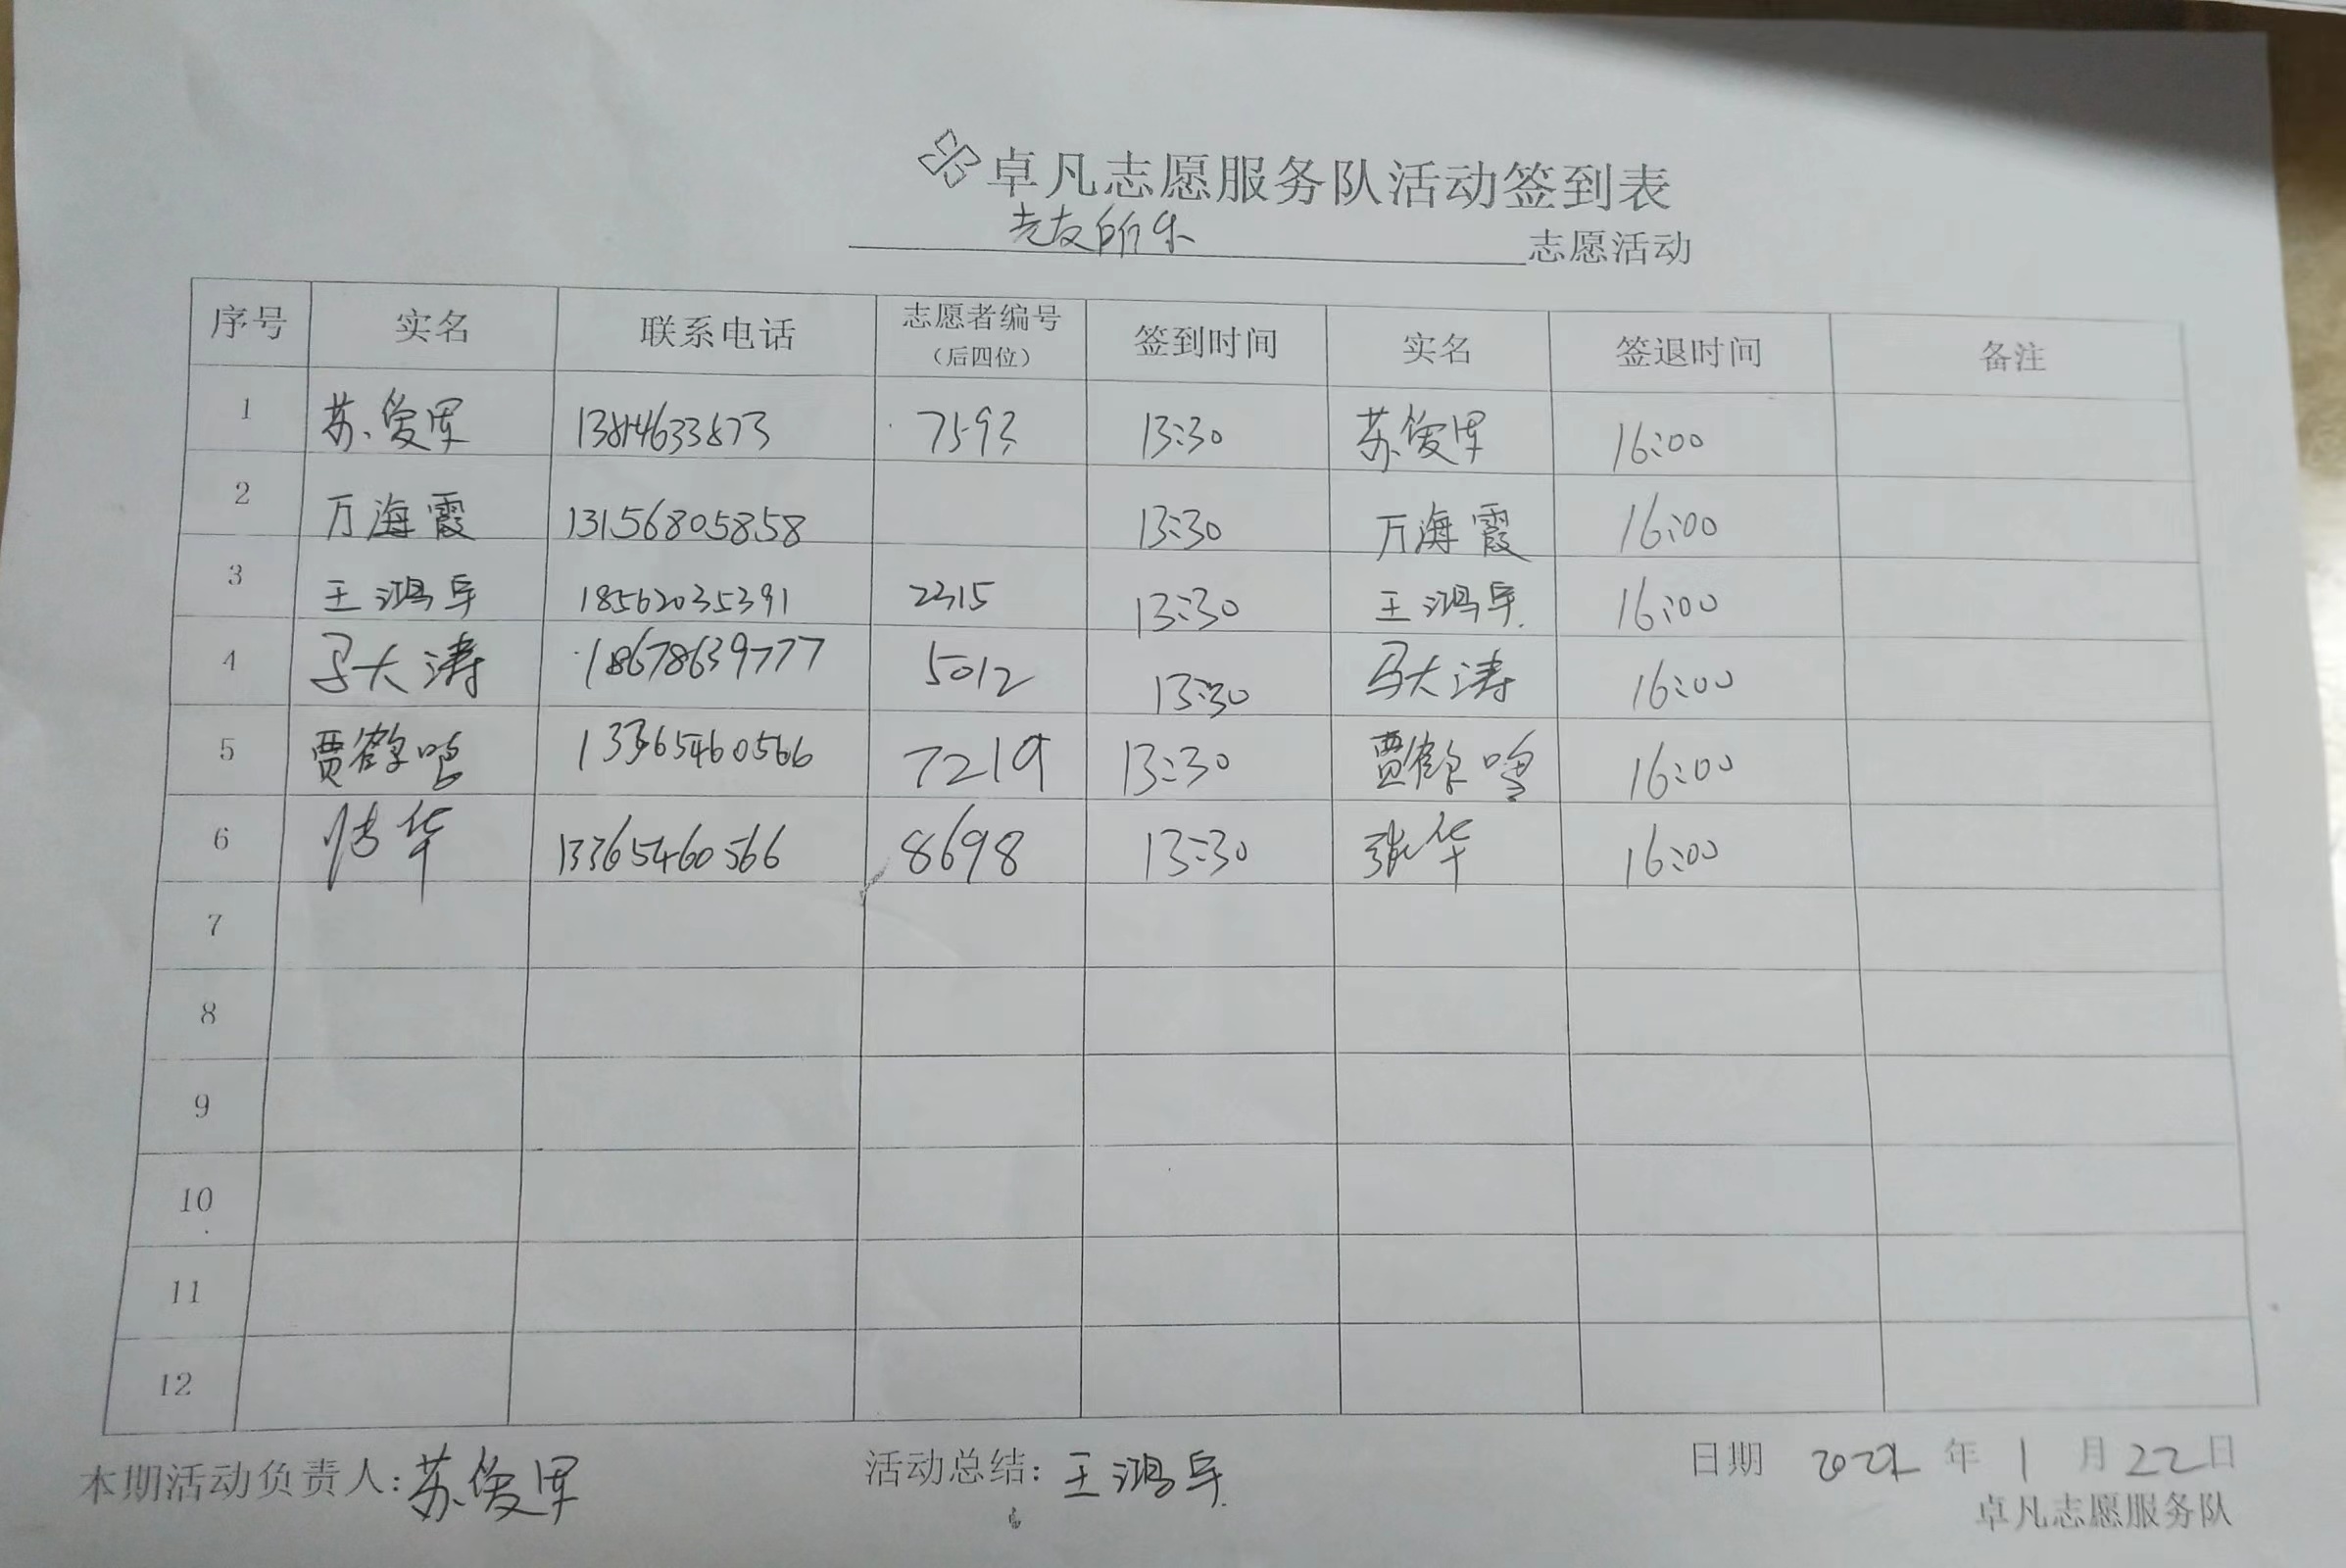 卓凡志愿服务队活动签到表
老友所乐 志愿活动
序号 实名 联系电话 志愿者编号（后四位） 签到时间 实名 签退时间 备注
1 苏俊军 13814633873 7593 13:30 苏俊军 16:00
2 万海霞 13156805858 13:30 万海霞 16:00
3 王鸿军 18562035391 2315 13:30 王鸿军 16:00
4 马大涛 18678639777 5012 13:30 马大涛 16:00
5 贾鹤鸣 13365460566 7219 13:30 贾鹤鸣 16:00
6 张华 13365460566 8698 13:30 张华 16:00
7
8
9
10
11
12
本期活动负责人：苏俊军 活动总结：王鸿军 日期 2022 年 1 月 22 日
卓凡志愿服务队